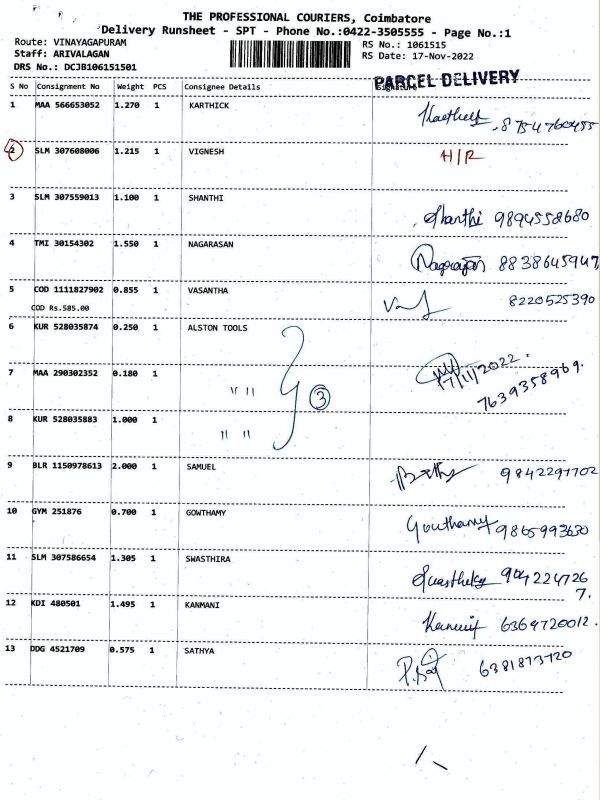 THE PROFESSIONAL COURIERS, Coimbatore
Delivery Runsheet - SPT - Phone No.:0422-3505555 - Page No.:1
Route: VINAYAGAPURAM RS No.: 1061515
Staff: ARIVALAGAN RS Date: 17-Nov-2022
DRS No.: DCJB106151501
PARCEL DELIVERY
S No Consignment No Weight PCS Consignee Details Signature
1 MAA 566653052 1.270 1 KARTHICK
2 SLM 307608006 1.215 1 VIGNESH H/R
3 SLM 307559013 1.100 1 SHANTHI Shanthi 9894558680
4 TMI 30154302 1.550 1 NAGARASAN Nagarajan 8838645947
5 COD 1111827902 0.855 1 VASANTHA 8220525390
COD Rs.585.00
6 KUR 528035874 0.250 1 ALSTON TOOLS
7 MAA 290302352 0.180 1 " " 3 17/11/2022.
7639358969.
8 KUR 528035883 1.000 1 " "
9 BLR 1150978613 2.000 1 SAMUEL 9842297702
10 GYM 251876 0.700 1 GOWTHAMY Gowthamy 9865993630
11 SLM 307586654 1.305 1 SWASTHIRA 904224726
7.
12 KDI 480501 1.495 1 KANMANI 6369720012.
13 DDG 4521709 0.575 1 SATHYA 6381873720